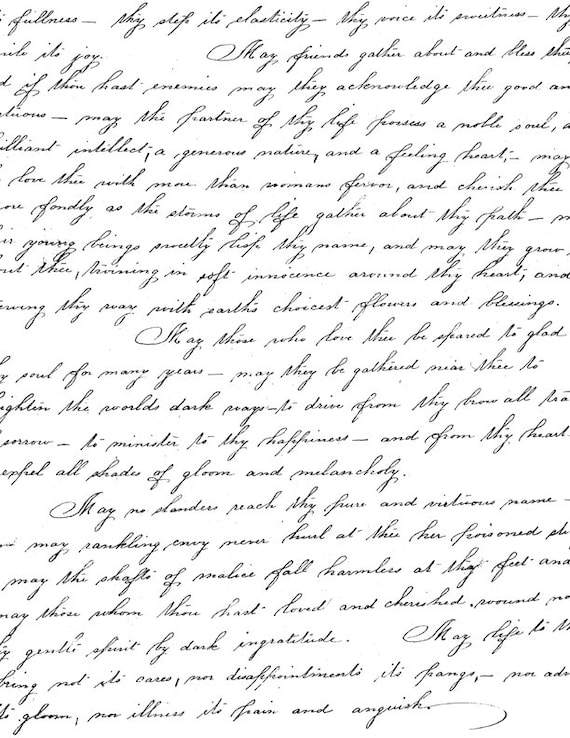 fullness — thy step its elasticity — thy voice its sweetness — thy
its joy. May friends gather about and bless thee
if thou hast enemies may they acknowledge thee good and
— may the partner of thy life possess a noble soul, a
brilliant intellect, a generous nature, and a feeling heart, — may
love thee with more than womans fervor, and cherish thee
more fondly as the storms of life gather about thy path —
young beings sweetly lisp thy name, and may they grow
thee, twining in soft innocence around thy heart, and
thy way with earths choicest flowers and blessings.
May those who love thee be spared to glad
soul for many years — may they be gathered near thee to
the worlds dark ways — to drive from thy brow all
sorrow — to minister to thy happiness — and from thy heart
expel all shades of gloom and melancholy.
May no slanders reach thy pure and virtuous name —
may rankling envy never hurl at thee her poisoned
may the shafts of malice fall harmless at thy feet and
may those whom thou hast loved and cherished, wound
gentle spirit by dark ingratitude. May life to
bring not its cares, nor disappointments its pangs, — nor
its gloom, nor illness its pain and anguish.